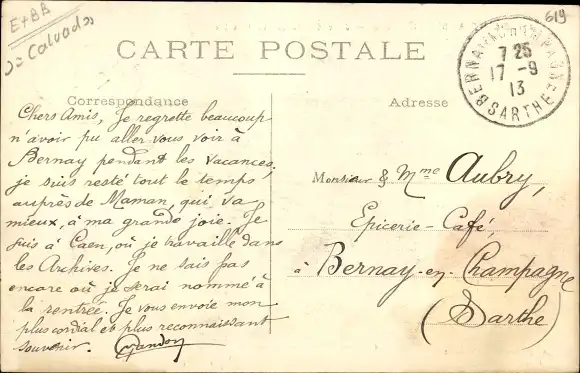 E+BB
Calvados
619
CARTE POSTALE
BERNAY-EN-CHAMPAGNE
7 25
17 - 9
13
SARTHE
Correspondance
Adresse
Chers Amis, Je regrette beaucoup
n'avoir pu aller vous voir à
Bernay pendant les vacances,
je suis resté tout le temps
auprès de Maman, qui va
mieux, à ma grande joie. Je
suis à Caen, où je travaille dans
les Archives. Je ne sais pas
encore où je serai nommé à
la rentrée. Je vous envoie mon
plus cordial et plus reconnaissant
souvenir.
Monsieur & Mme Aubry,
Epicerie-Café,
à Bernay-en-Champagne
(Sarthe)